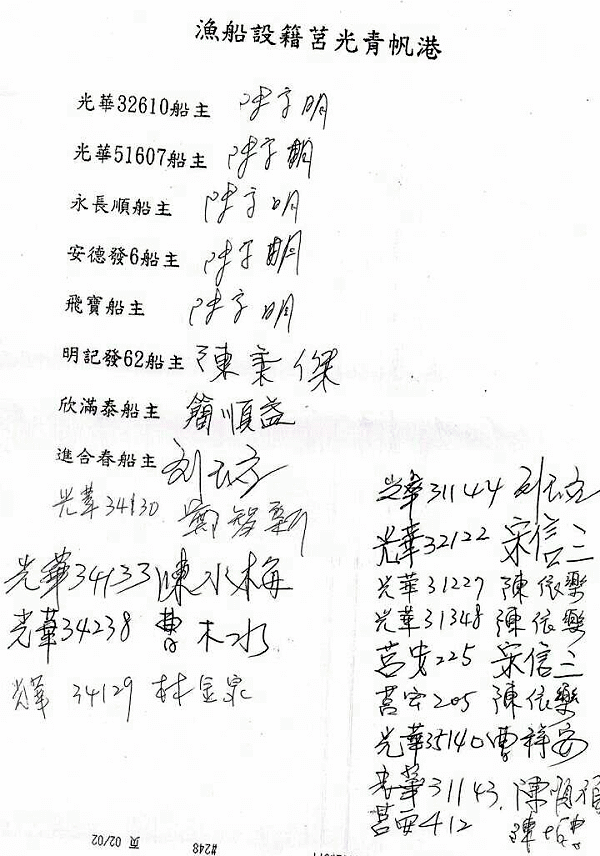 漁船設籍莒光青帆港
光華32610船主 陳字明
光華51607船主 陳字明
永長順船主 陳字明
安德發6船主 陳字明
飛寶船主 陳字明
明記發62船主 陳秉傑
欣滿泰船主 簡順益
進合春船主
光華34130 鄭智新
光華34133 陳水梅
光華34238 曹木水
光華 34129 林金泉
光華31144
光華32122 宋信三
光華31229 陳依樂
光華31348 陳依樂
莒安225 宋信三
莒安205 陳依樂
光華35140 曹祥安
光華31143 陳順
莒西412 陳
#248 頁 02/02